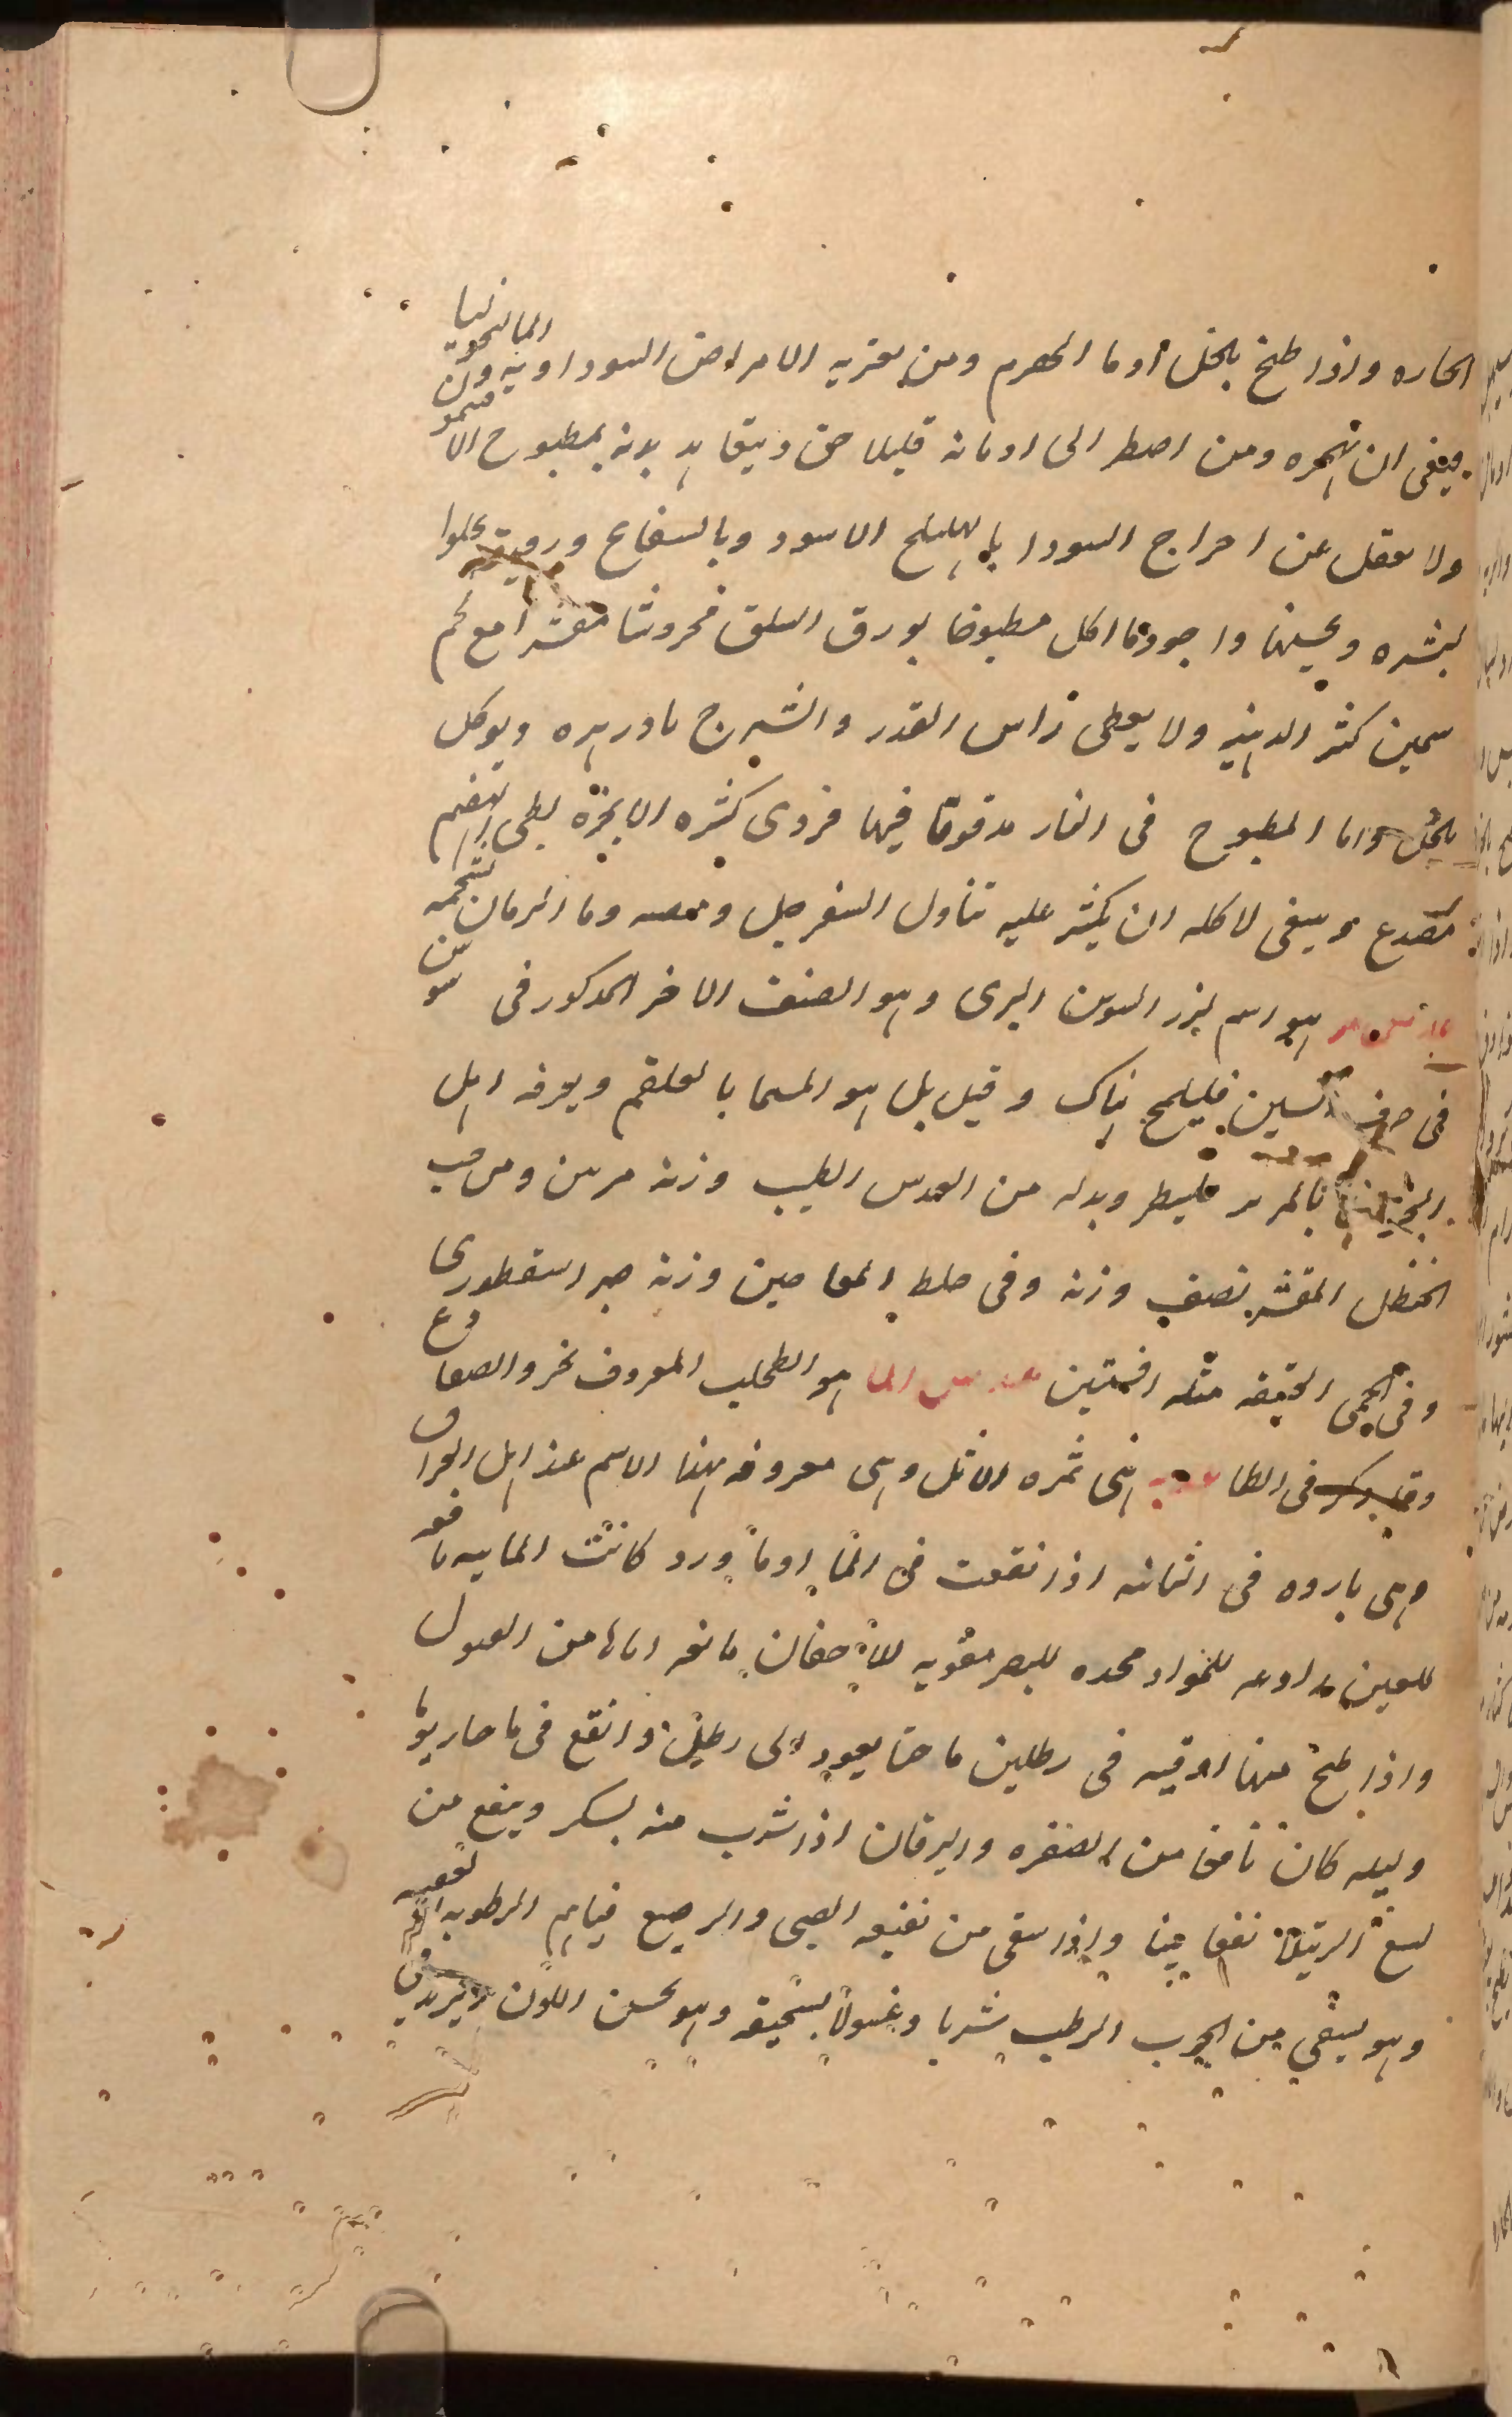 الحاره واذا طبخ بالخل او ما الحصرم ومن يعتريه الامراض السوداويه والمالنخوليا
فينبغى ان يهجره ومن اضطر الى ادمانه قليلا ويتعاهد بدنه بمطبوخ الافتيمون
ولا يغفل عن اخراج السودا بالهليلج الاسود وبالبسفايج ودقيقه يجلوا
البشره ويحسنها واجودما اكل مطبوخا بورق السلق مجروشا مقشرا مع لحم
سمين كثير الدهنيه ولا يغطى راس القدر والشيرج ما ويوكل
بالخل واما المطبوخ فى الغار مدقوقا فيها فردى كثيره الابخرة بطى الهضم
مصدع وينبغى لاكله ان يكثر عليه تناول السفرجل ومصه وما الرمان بشحمه
عدس مر هو اسم لبزر السوسن البرى وهو الصنف الاخر المدكور فى سوسن
فى حرف السين فليلمح هناك وقيل بل هو المسما بالعلقم ويعرفه اهل
بالمرير فلينظر وبدله من العدس الطيب وزنه مرتين ومن حب
الحنظل المقشر نصف وزنه وفى خلط المعاجين وزنه صبر اسقطورى
وفى الحمى العتيقه مثله افسنتين عدس الما هو الطحلب المعروف بخرو الضفادع
وقد ذكر فى الطا عذبه هى ثمره الاثل وهى معروفه بهذا الاسم عند اهل العراق
وهى بارده فى الثانيه اذا نقعت فى الما او ما ورد كانت المائيه نافعه
للعين رادعه للمواد محده للبصر مقويه للاجفان مانعه اياها من القبول
واذا طبخ منها اوقيه فى رطلين ما حتا يعود الى رطل وانقع فى ما حار يوما
وليله كان نافعا من الصفره واليرقان اذا شرب منه بسكر وينفع من
لسع الرتيلا نفعا بينا واذا سقى من نقيعه الصبى والرضيع الرطوبه
وهو يشفى من الجرب الرطب شربا وغسولا بسحيقه وهو يحسن اللون ويزيد فى